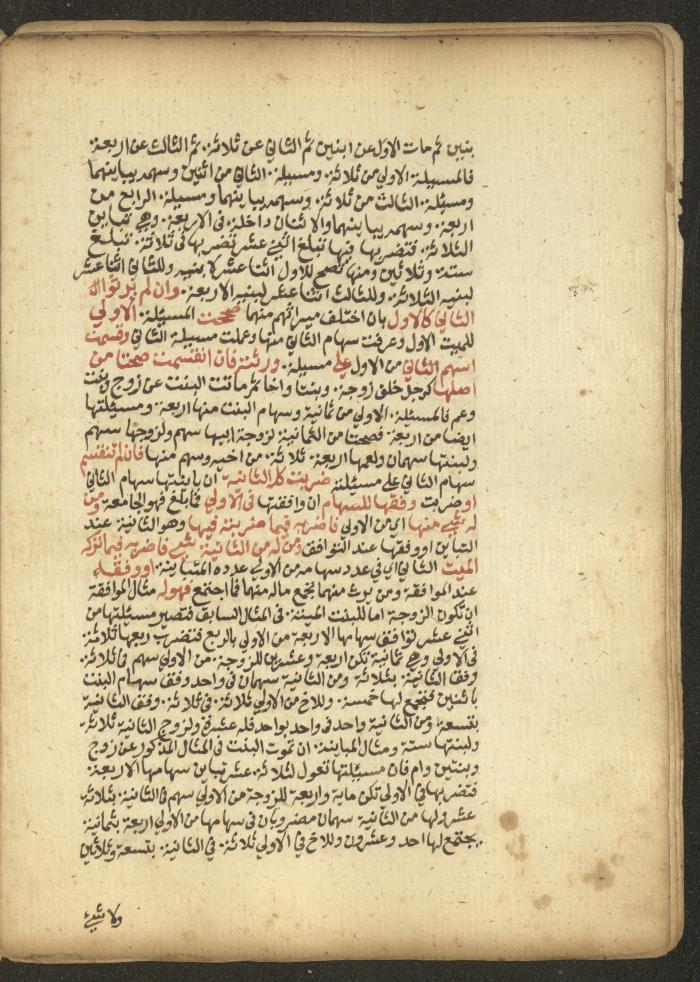 بنين ثم مات الاول عن ابنين ثم الثاني عن ثلاثة. ثم الثالث عن اربعة.
فالمسيلة. الاولي من ثلاثة. ومسيلة. الثاني من اثنين وسهمه يباينهما
ومسئلة. الثالث من ثلاثة. وسهمه يباينهما ومسيلة. الرابع من
اربعة. وسهمه يباينهما والاثنان داخلة. في الاربعة. وهي تباين
الثلاثة. فتضربها فيها تبلغ اثني عشر تضربها في ثلاثة. تبلغ
ستة. وثلاثين ومنها تصح للاول اثنا عشر لابنيه وللثاني اثنا عشر
لبنيه الثلاثة. وللثالث اثنا عشر لبنيه الاربعة. وان لم يرثوا
الثاني كالاول بان اختلف ميراثهم منهما صححت المسيلة. الاولي
للميت الاول وعرفت سهام الثاني منها وعملت مسيلة الثاني وقسمت
اسهم الثاني من الاول علي مسيلة. ورثته فان انقسمت صحتا من
اصلها كرجل خلف زوجة. وبنتا واخا ثم ماتت البنت عن زوج وبنت
وعم فالمسئلة. الاولي من ثمانية وسهام البنت منها اربعة. ومسئلتها
ايضا من اربعة. فصحتا من الثمانية لزوجة ابيها سهم ولزوجها سهم
ولبنتها سهمان ولعمها اربعة. ثلاثة. من اخيه وسهم منها فان لم تنقسم
سهام الثاني علي مسيلته ضربت كل الثانية ان باينتها سهام الثاني
او ضربت وفقها للسهام ان وافقتها في الاولي فما بلغ فهو الجامعة ومن
له شيء منها اي من الاولي فاضربه فيما ضربته فيها وهو الثانية عند
التباين او وفقها عند التوافق ومن له من الثانية شيء فاضربه فيما تركه
الميت الثاني اي في عدد سهامه من الاولي عدده المتباينة. او وفقه
عند الموافقة ومن يرث منهما تجمع ماله منهما فما اجتمع فهو له مثال الموافقة
ان تكون الزوجة اما للبنت الميتة. في المثال السابق فتصير مسيلتها من
اثني عشر توافق سهامها الاربعة من الاولي بالربع فتضرب ربعها ثلاثة.
في الاولي وهي ثمانية تكن اربعة وعشرين للزوجة. من الاولي سهم في ثلاثة.
وفق الثانية. بثلاثة ومن الثانية سهمان في واحد وفق سهام البنت
باثنين فيجتمع لها خمسة. وللاخ من الاولي ثلاثة. في ثلاثة. وفق الثانية
بتسعة ومن الثانية واحد في واحد بواحد فله عشرة ولزوج الثانية ثلاثة.
ولبنتها ستة ومثال المباينة. ان تموت البنت في المثال المذكور عن زوج
وبنتين وام فان مسيلتها تعول لثلاثة. عشر تباين سهامها الاربعة.
فتضربها في الاولي تكن ماية واربعة للزوجة من الاولي سهم في الثانية. بثلاثة
عشر ولها من الثانية سهمان مضروبان في سهامها من الاولي اربعة بثمانية
يجتمع لها احد وعشرون وللاخ في الاولي ثلاثة. في الثانية. بتسعة وثلاثين
ولا شيء